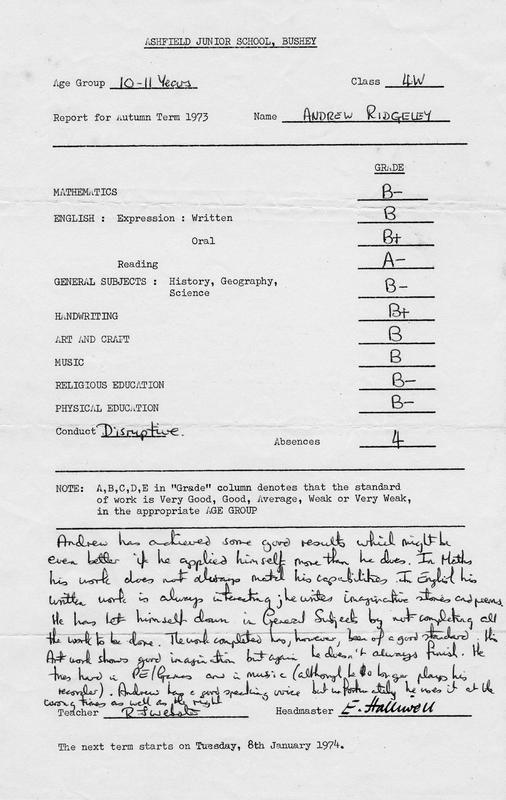 ASHFIELD JUNIOR SCHOOL, BUSHEY
Age Group 10-11 Years Class 4W
Report for Autumn Term 1973 Name ANDREW RIDGELEY
GRADE
MATHEMATICS B-
ENGLISH : Expression : Written B
Oral B+
Reading A-
GENERAL SUBJECTS : History, Geography,
Science B-
HANDWRITING B+
ART AND CRAFT B
MUSIC B
RELIGIOUS EDUCATION B-
PHYSICAL EDUCATION B-
Conduct Disruptive.
Absences 4
NOTE: A,B,C,D,E in "Grade" column denotes that the standard
of work is Very Good, Good, Average, Weak or Very Weak,
in the appropriate AGE GROUP
Andrew has achieved some good results which might be
even better if he applied himself more than he does. In Maths
his work does not always match his capabilities. In English his
written work is always interesting; he writes imaginative stories and poems.
He has let himself down in General Subjects by not completing all
the work to be done. The work completed has, however, been of a good standard. His
Art work shows good imagination but again he doesn't always finish. He
tries hard in PE/Games and in music (although he no longer plays his
recorder). Andrew has a good speaking voice but unfortunately he uses it at the
wrong times as well as the right
Teacher Headmaster E. Halliwell
The next term starts on Tuesday, 8th January 1974.